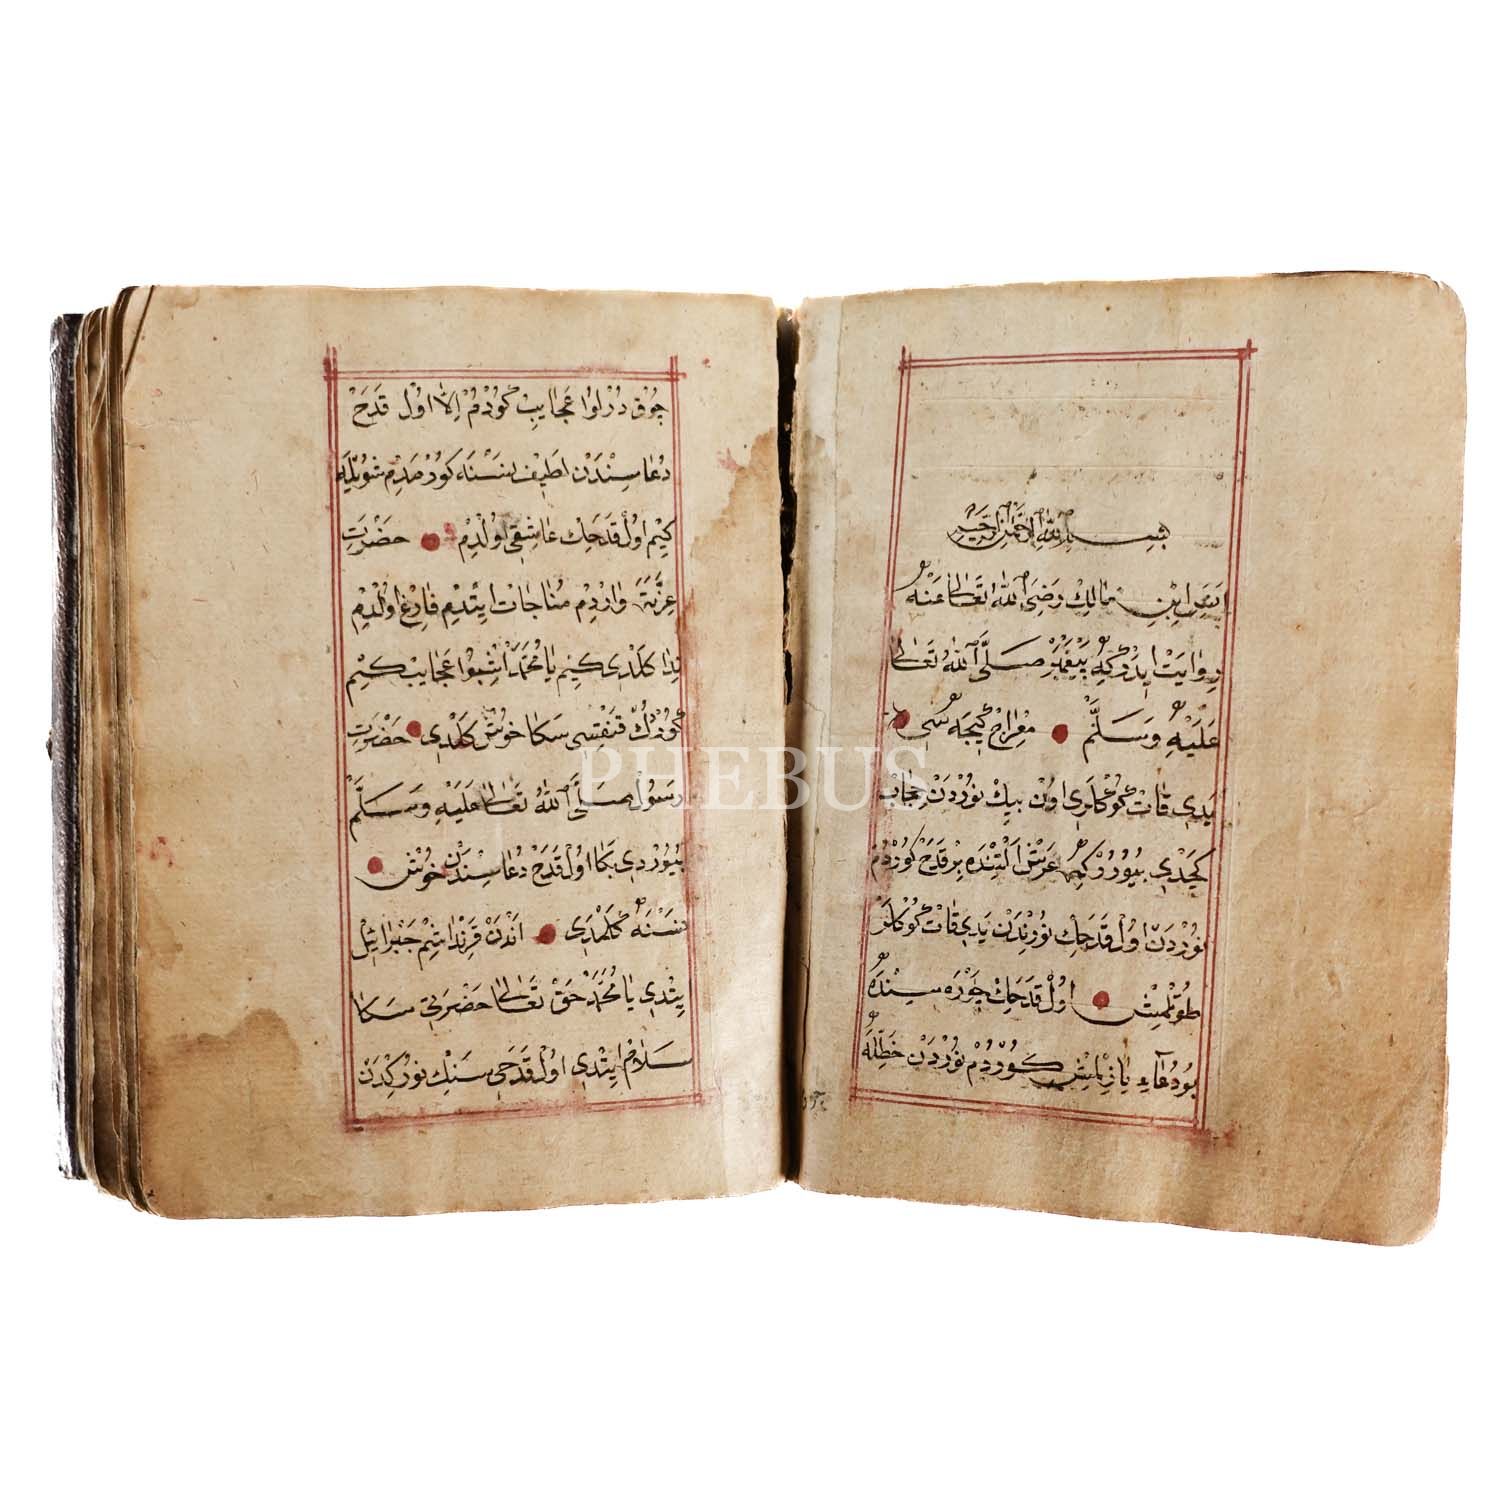 بِسْمِ اللّٰهِ الرَّحْمٰنِ الرَّحِيمِ
ابْنِ مَالِكْ رَضِيَ اللّٰهُ تَعَالٰى عَنْهُ
رِوَايَتْ اِيدَرْكِه پَيْغَمْبَرْ صَلَّى اللّٰهُ تَعَالٰى
عَلَيْهِ وَسَلَّمْ مِعْرَاجْ كِيجَه سِى
يَدِى قَاتْ كَوْكلَرِى اوُنْ بِيكْ نُورْدَنْ حِجَابْ
كَچْدِى بُيُورُرْكِمْ عَرْشْ اَلْتِنْدَه بِرْ قَدَحْ كُورْدُمْ
نُورْدَنْ اوُلْ قَدَحِكْ نُورِنْدَنْ يَدِى قَاتْ كَوْكلَرْ
طُوتُلْمِشْ اوُلْ قَدَحِكْ چَوْرَه سِنْدَه
بُو دُعَاءِ يَازِلْمِشْ كُورْدُمْ نُورْدَنْ خَطِّلَه
چُوقْ دُرْلُوا عَجَايِبْ كُورْدُمْ اِلَّا اوُلْ قَدَحْ
دُعَاسِنْدَنْ لَطِيفْ نَسْنَه كُورْمَدِمْ شُويْلَه
كِيمْ اوُلْ قَدَحِكْ عَاشِقِى اوُلْدُمْ حَضْرَتِ
عِزَّتَه وَارْدُمْ مُنَاجَاتْ اِيتْدِمْ فَارِغْ اوُلْدُمْ
نِدَا كَلْدِى كِيمْ يَا مُحَمَّدْ اُشْبُوا عَجَايِبْ كِيمْ
كُورْدُكْ قَنْقِسِى سَكَا خُوشْ كَلْدِى حَضْرَتِ
رَسُولْ صَلَّى اللّٰهُ تَعَالٰى عَلَيْهِ وَسَلَّمْ
بُيُورْدِى بَكَا اوُلْ قَدَحْ دُعَاسِنْدَنْ خُوشْ
نَسْنَه كَلْمَدِى اَنْدَنْ قَرِنْدَاشِمْ جَبْرَائِلْ
اِيتْدِى يَا مُحَمَّدْ حَقْ تَعَالٰى حَضْرَتِى سَكَا
سَلَامْ اِيتْدِى اوُلْ قَدَحِى سَنِكْ نُورِكْدَنْ
PHEBUS